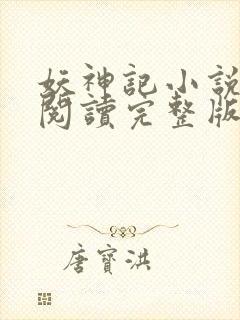 妖神記小說
閱讀完整版
唐寶洪